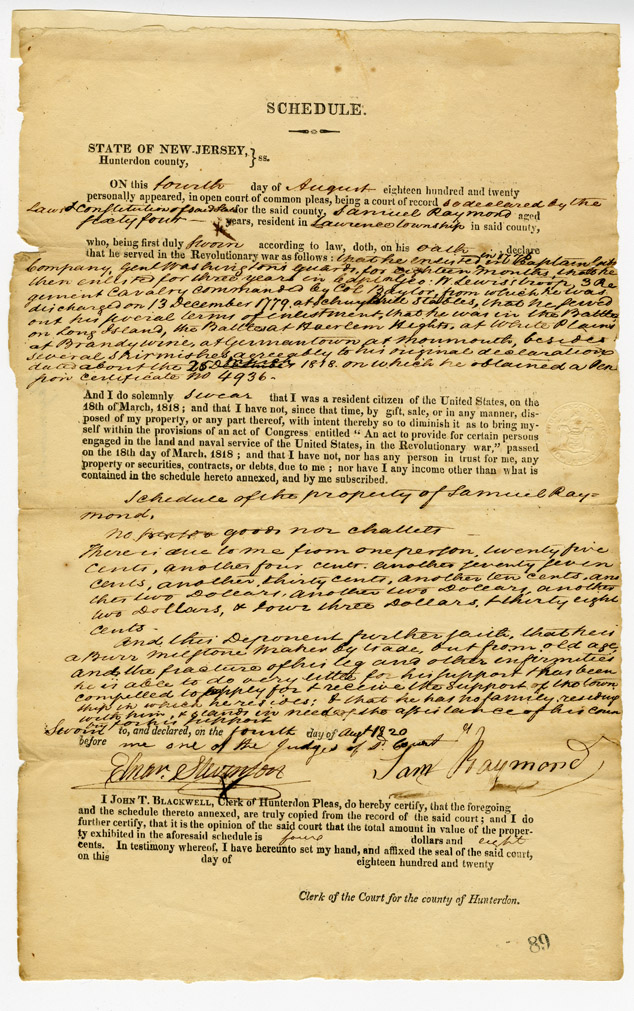 SCHEDULE.
STATE OF NEW-JERSEY,
Hunterdon county, } ss.
ON this fourth day of August eighteen hundred and twenty
personally appeared, in open court of common pleas, being a court of record so declared by the
Laws & Constitution of said for the said county, Samuel Raymond aged
sixty four years, resident in Lawrence township in said county,
who, being first duly sworn according to law, doth, on his oath, declare
that he served in the Revolutionary war as follows: that he enlisted in Captain
Company, Genl Washingtons guards, for eighteen months, that he
then enlisted for three years in Captain troop, 3 Re
giment Cavalry commanded by Col. Baylor, from which he was
discharged on 13 December 1779. at Stables, that he served
out his several terms of enlistment, that he was in the Battle
on Long Island, the Battles at Haerlem Hights, at White Plains
at Brandywine, at Germantown at Monmouth, besides
several skirmishes, agreeably to his original declaration
dated about the 25 1818. on which he obtained a Pen
sion certificate No 4936.
And I do solemnly swear that I was a resident citizen of the United States, on the
18th of March, 1818; and that I have not, since that time, by gift, sale, or in any manner, dis-
posed of my property, or any part thereof, with intent thereby so to diminish it as to bring my-
self within the provisions of an act of Congress entitled "An act to provide for certain persons
engaged in the land and naval service of the United States, in the Revolutionary war," passed
on the 18th day of March, 1818; and that I have not, nor has any person in trust for me, any
property or securities, contracts, or debts, due to me; nor have I any income other than what is
contained in the schedule hereto annexed, and by me subscribed.
Schedule of the property of Samuel Ray=
mond.
No goods nor challets
There is due to me from one person, twenty five
cents, another four cents. another seventy seven
cents, another, thirty cents, another ten cents, ano
ther two Dollars, another two Dollars, another
two Dollars, & I owe three Dollars, & thirty eight
cents.
And this Deponent further saith, that he is
a Burr milstone maker by trade, but from old age
and the fracture of his leg and other infirmities
he is able to do very little for his support & has been
compelled to apply for & receive the support of the town
ship in which he resides; & that he has no family residing
with him, & stands in need of the assistance of his coun
try for his support
Sworn to, and declared, on the fourth day of Augt 1820
before me one of the Judges of sd. Court
Sam Raymond
I JOHN T. BLACKWELL, Clerk of Hunterdon Pleas, do hereby certify, that the foregoing
and the schedule thereto annexed, are truly copied from the record of the said court; and I do
further certify, that it is the opinion of the said court that the total amount in value of the proper-
ty exhibited in the aforesaid schedule is four dollars and eight
cents. In testimony whereof, I have hereunto set my hand, and affixed the seal of the said court,
on this day of eighteen hundred and twenty
Clerk of the Court for the county of Hunterdon.
89